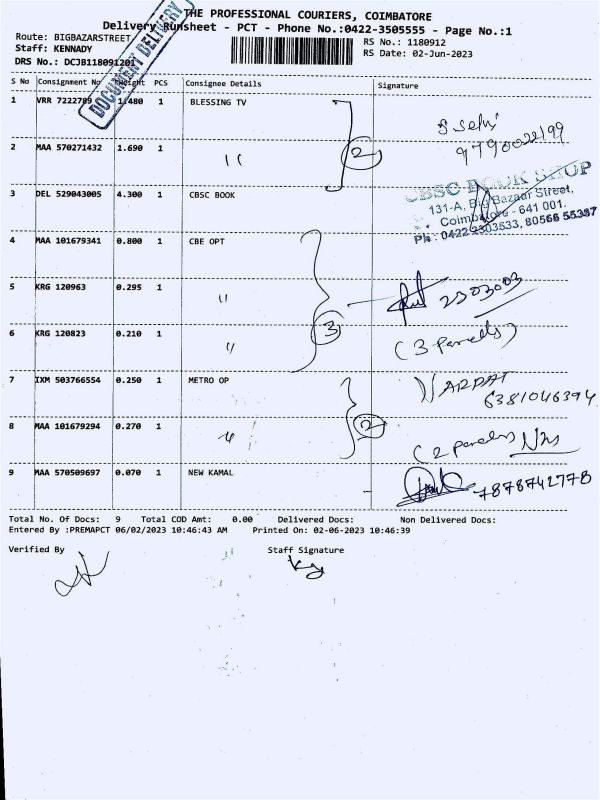 THE PROFESSIONAL COURIERS, COIMBATORE
Delivery Runsheet - PCT - Phone No.:0422-3505555 - Page No.:1
Route: BIGBAZARSTREET
RS No.: 1180912
Staff: KENNADY
RS Date: 02-Jun-2023
DRS No.: DCJB118091201
DOCUMENT DELIVERY
S No Consignment No Weight PCS Consignee Details Signature
1 VRR 7222789 1.480 1 BLESSING TV
9790022199
2 MAA 570271432 1.690 1 " (2)
3 DEL 529043005 4.300 1 CBSC BOOK
CBSC BOOK SHOP
131-A, Big Bazaar Street,
Coimbatore - 641 001.
Ph : 0422 2303533, 80566 55387
4 MAA 101679341 0.800 1 CBE OPT
5 KRG 120963 0.295 1 " 2303003
6 KRG 120823 0.210 1 " (3) (3 Parcels)
7 IXM 503766554 0.250 1 METRO OP
6381046394
8 MAA 101679294 0.270 1 " (2) (2 parcels)
9 MAA 570509697 0.070 1 NEW KAMAL 7878742778
Total No. Of Docs: 9 Total COD Amt: 0.00 Delivered Docs: Non Delivered Docs:
Entered By :PREMAPCT 06/02/2023 10:46:43 AM Printed On: 02-06-2023 10:46:39
Verified By Staff Signature